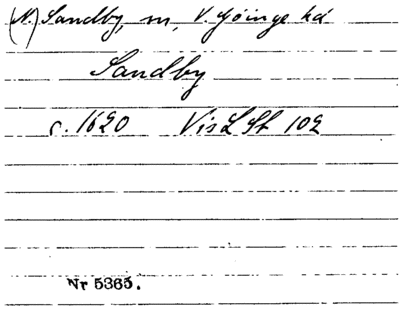 (N.) Sandby, m, V. Göinge hd
Sandby
c. 1620 VisLSt 102
Nr 5365.